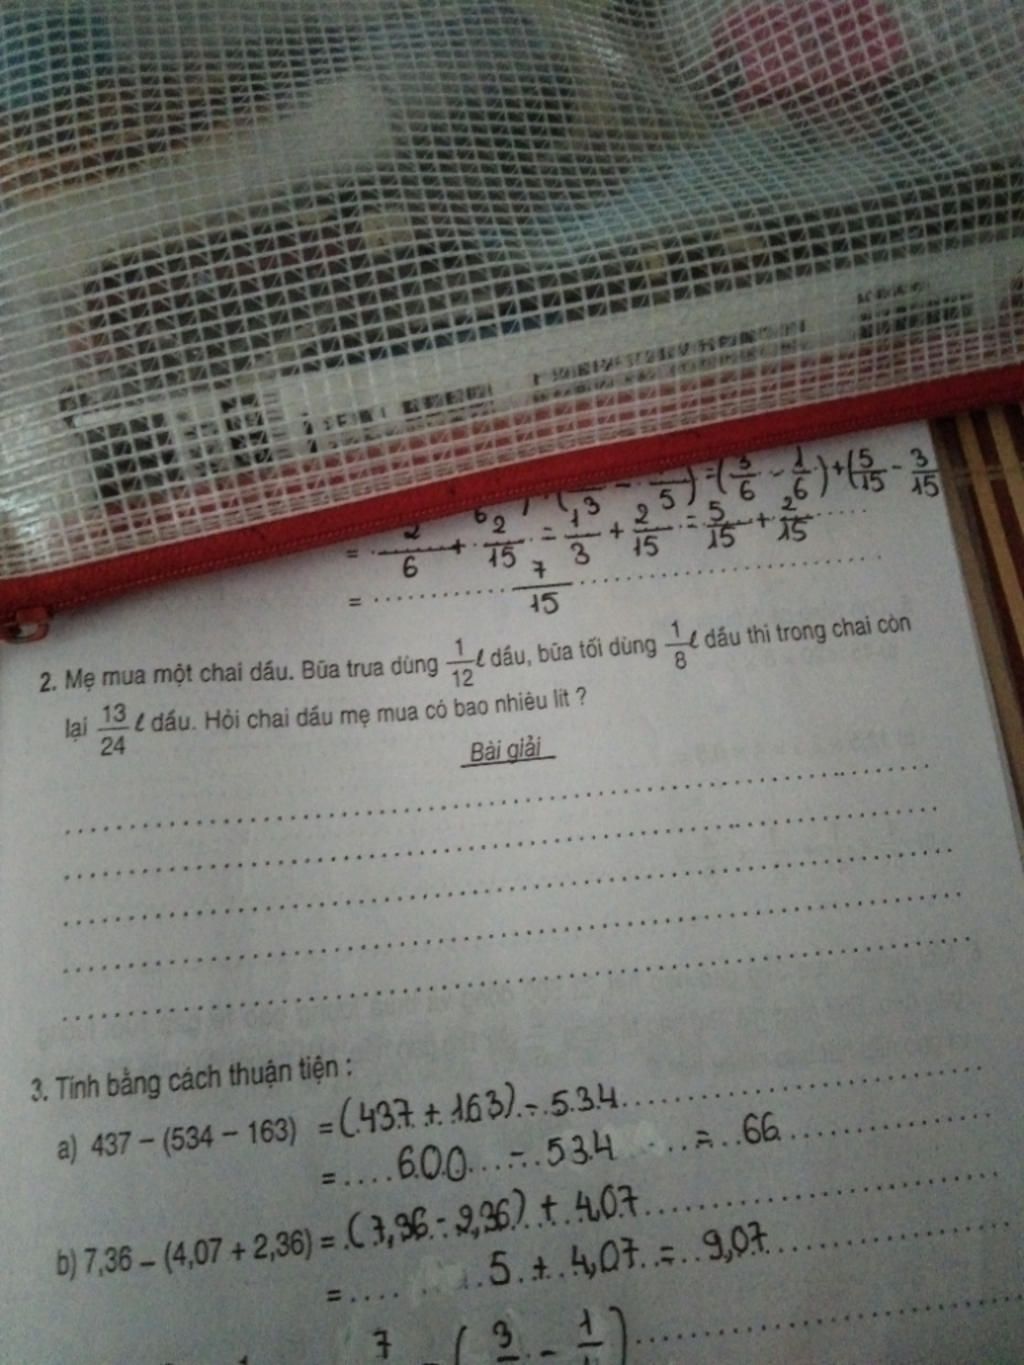 ) = (3/6 - 1/6) + (5/15 - 3/15
= 2/6 + 2/15 = 1/3 + 2/15 = 5/15 + 2/15
= 7/15
2. Mẹ mua một chai dầu. Bữa trưa dùng 1/12 ℓ dầu, bữa tối dùng 1/8 ℓ dầu thì trong chai còn
lại 13/24 ℓ dầu. Hỏi chai dầu mẹ mua có bao nhiêu lít ?
Bài giải
3. Tính bằng cách thuận tiện :
a) 437 – (534 – 163) = (437 + 163) - 534
= 600 - 534 = 66
b) 7,36 – (4,07 + 2,36) = (7,36 - 2,36) + 4,07
= 5 + 4,07 = 9,07